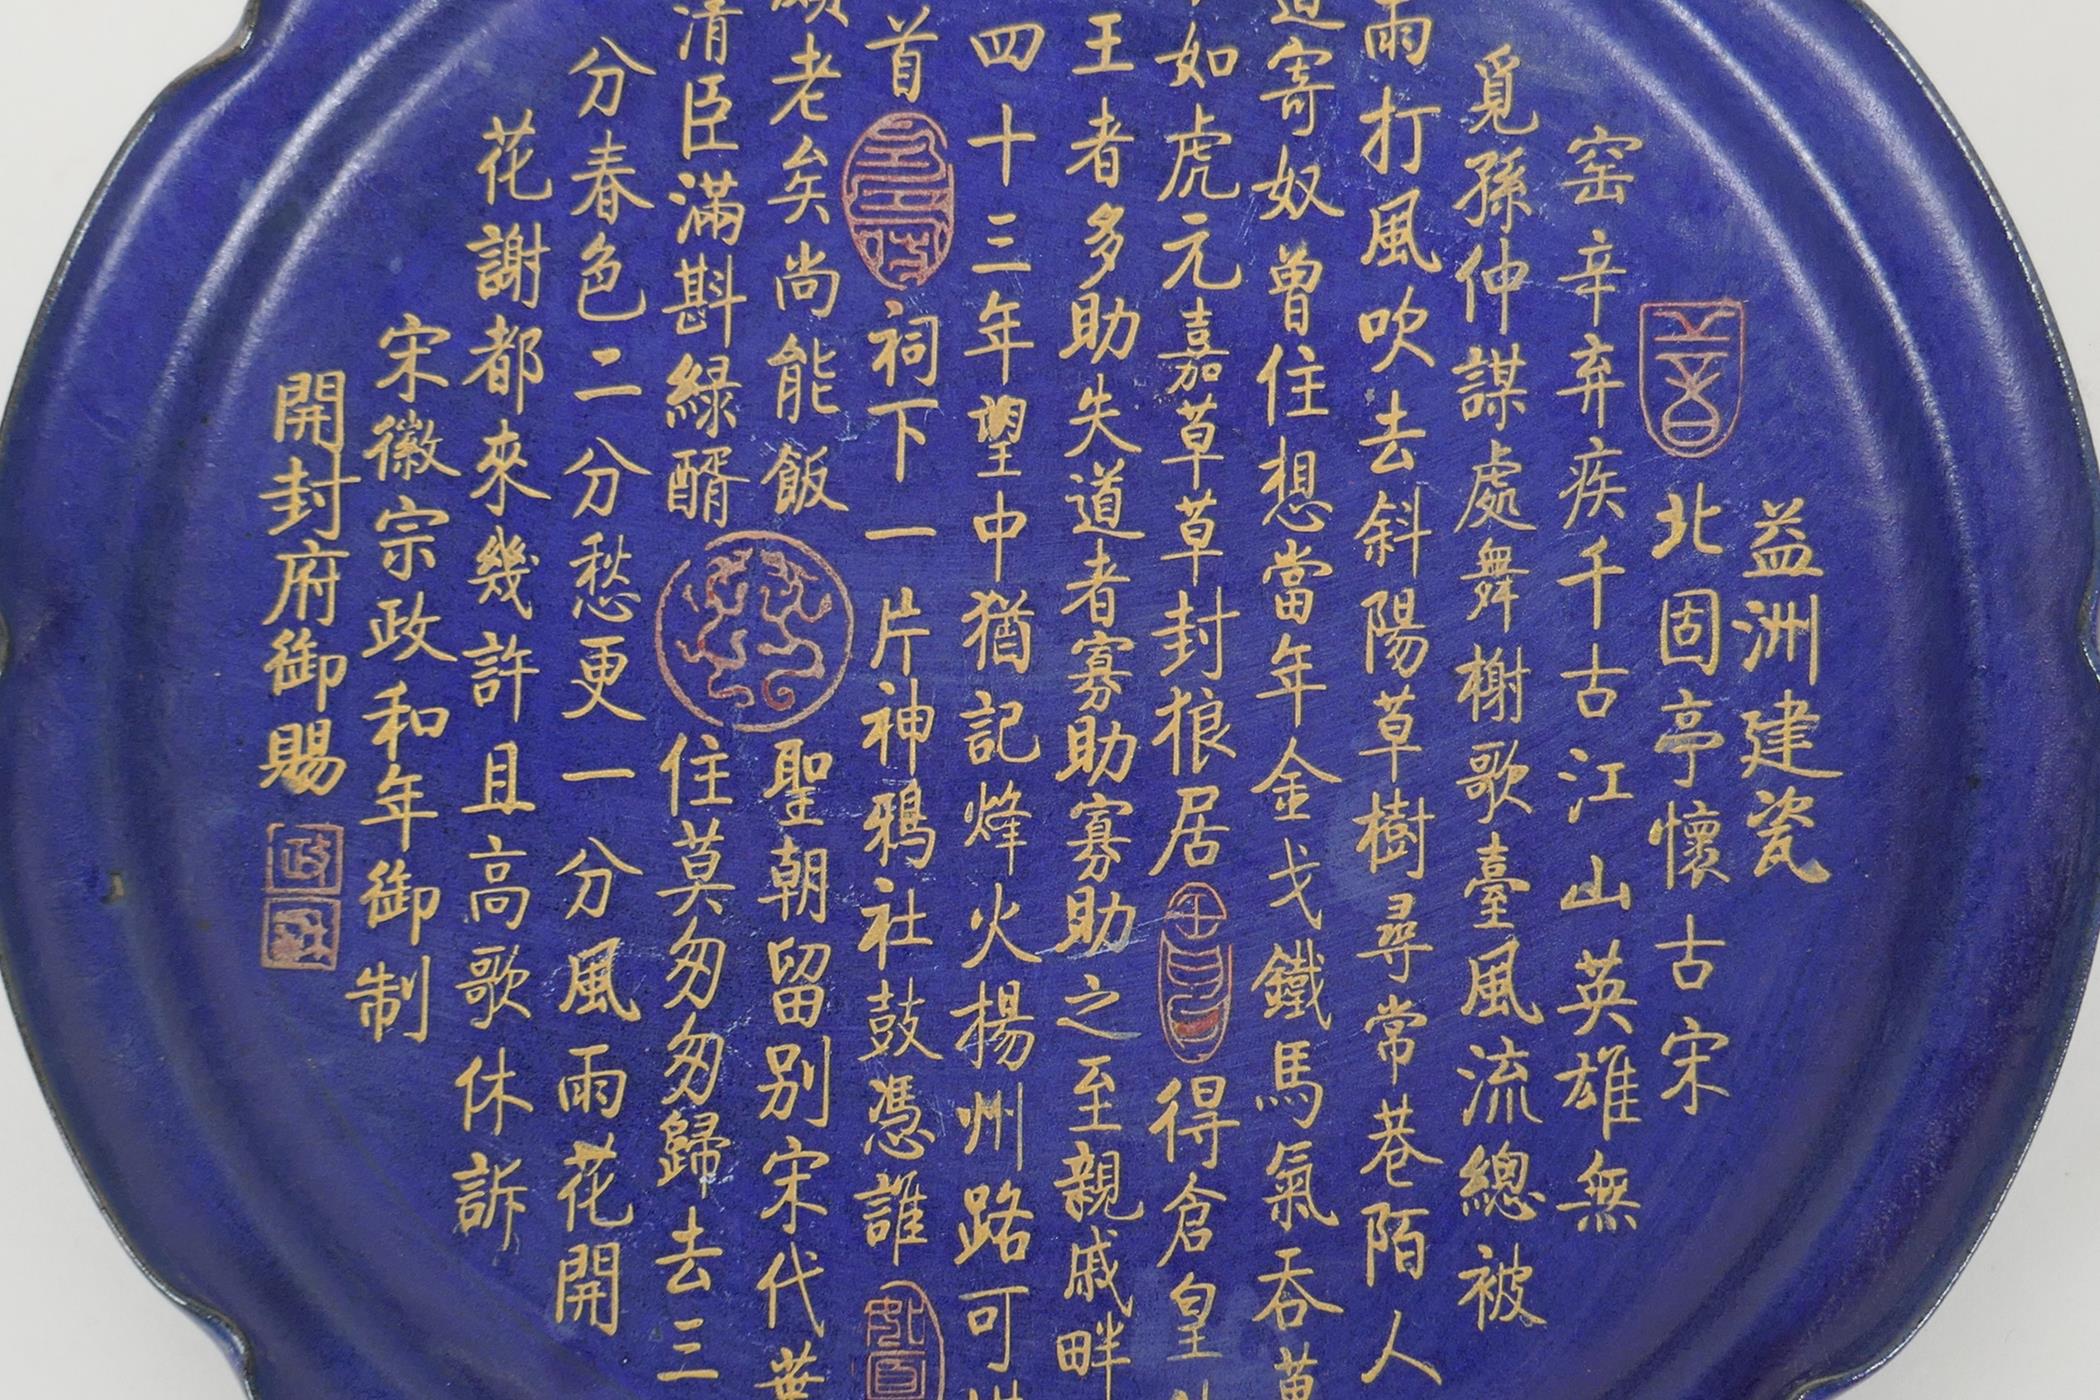 益洲建瓷
北固亭懷古宋
窑辛弃疾千古江山英雄無
覓孫仲謀處舞榭歌臺風流總被
雨打風吹去斜陽草樹尋常巷陌人
道寄奴曾住想當年金戈鐵馬氣吞萬
如虎元嘉草草封狼居
得倉皇
王者多助失道者寡助寡助之至親戚畔
四十三年望中猶記烽火揚州路可
首
祠下一片神鴉社鼓憑誰
老矣尚能飯
聖朝留別宋代葉
清臣滿斟綠醑
住莫匆匆歸去三
分春色二分愁更一分風雨花開
花謝都來幾許且高歌休訴
宋徽宗政和年御制
開封府御賜